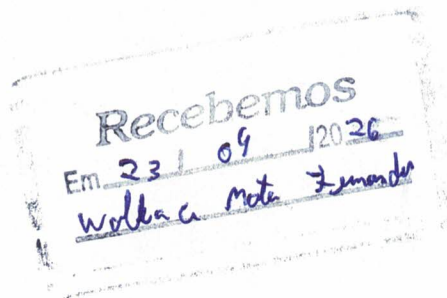 Recebemos
Em 23 / 04 /2026
Wallace Mota Fernandes